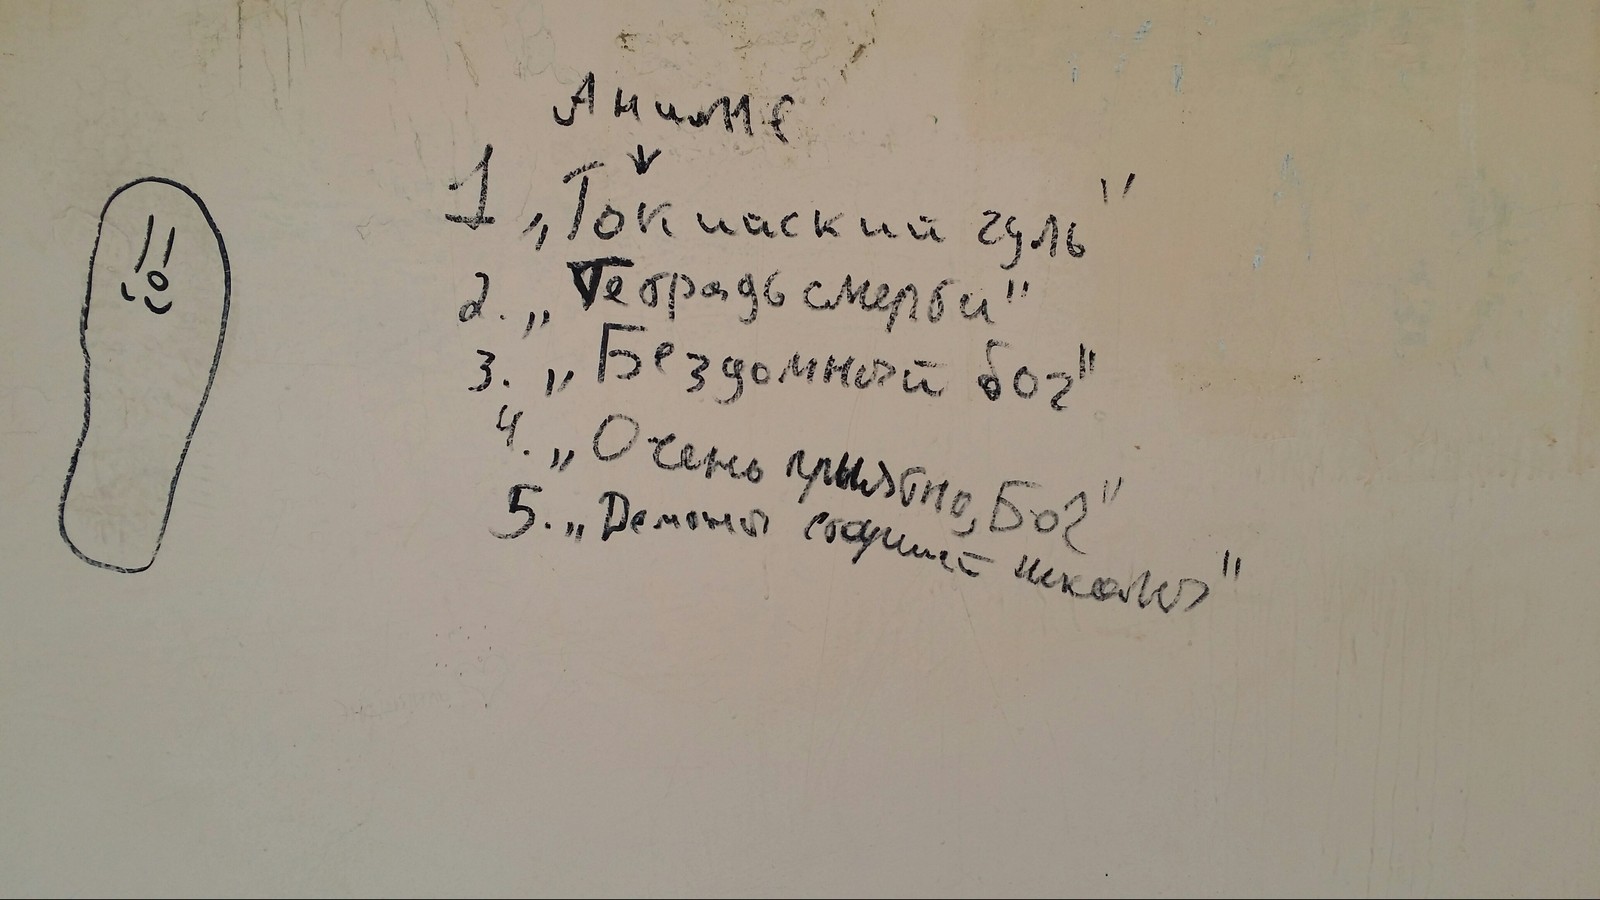 Аниме
1 „Токийский гуль"
2. „Тетрадь смерти"
3. „Бездомный бог"
4. „Очень приятно, Бог"
5. „Демоны старшей школы"